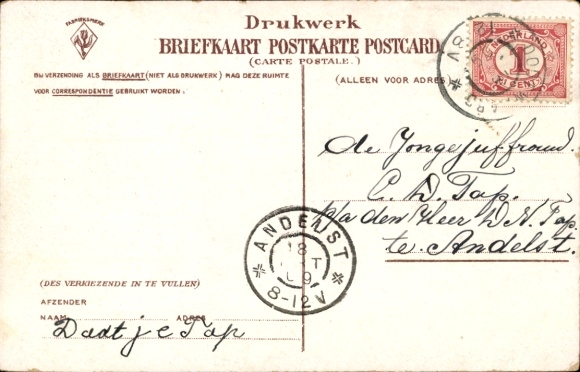 FABRIEKSMERK
Drukwerk
BRIEFKAART POSTKARTE POSTCARD
(CARTE POSTALE.)
BIJ VERZENDING ALS BRIEFKAART (NIET ALS DRUKWERK) MAG DEZE RUIMTE
VOOR CORRESPONDENTIE GEBRUIKT WORDEN:
(ALLEEN VOOR ADRES)
NEDERLAND
1
CENT
de Jongejuffroud.
C. D. Tap.
p/a den Heer D. N. Tap.
te Andelst.
ANDELST
18
9
8-12V
(DES VERKIEZENDE IN TE VULLEN)
AFZENDER
NAAM ADRES
Daatje Tap